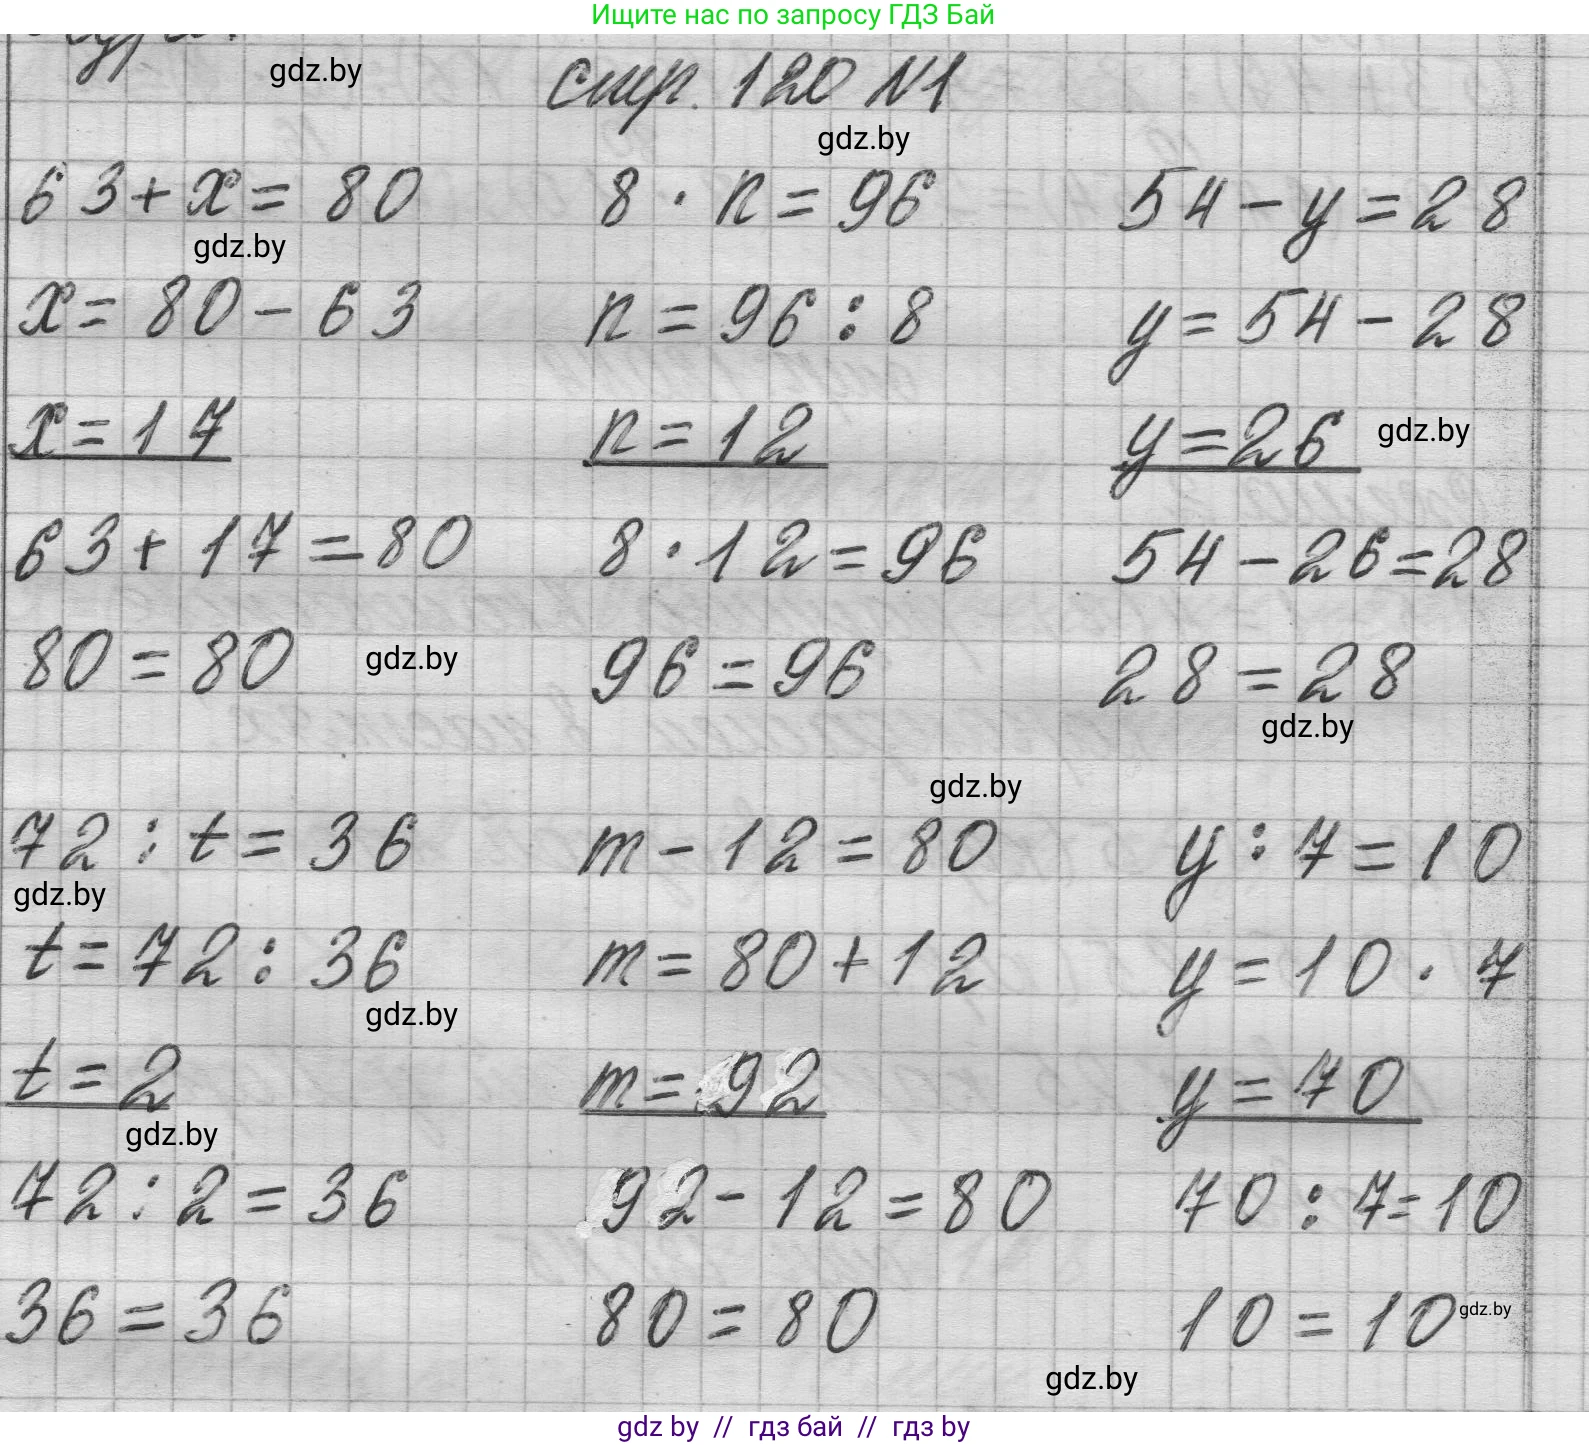 Ищите нас по запросу ГДЗ Бай
gdz.by
стр. 120 №1
gdz.by
63+x=80 8·n=96 54-y=28
gdz.by
x=80-63 n=96:8 y=54-28
x=17 n=12 y=26 gdz.by
63+17=80 8·12=96 54-26=28
80=80 gdz.by 96=96 28=28
gdz.by
gdz.by
72:t=36 m-12=80 y:7=10
gdz.by
t=72:36 m=80+12 y=10·7
gdz.by
t=2 m=92 y=70
gdz.by
72:2=36 92-12=80 70:7=10
36=36 80=80 10=10 gdz.by
gdz.by
gdz by // гдз бай // гдз by